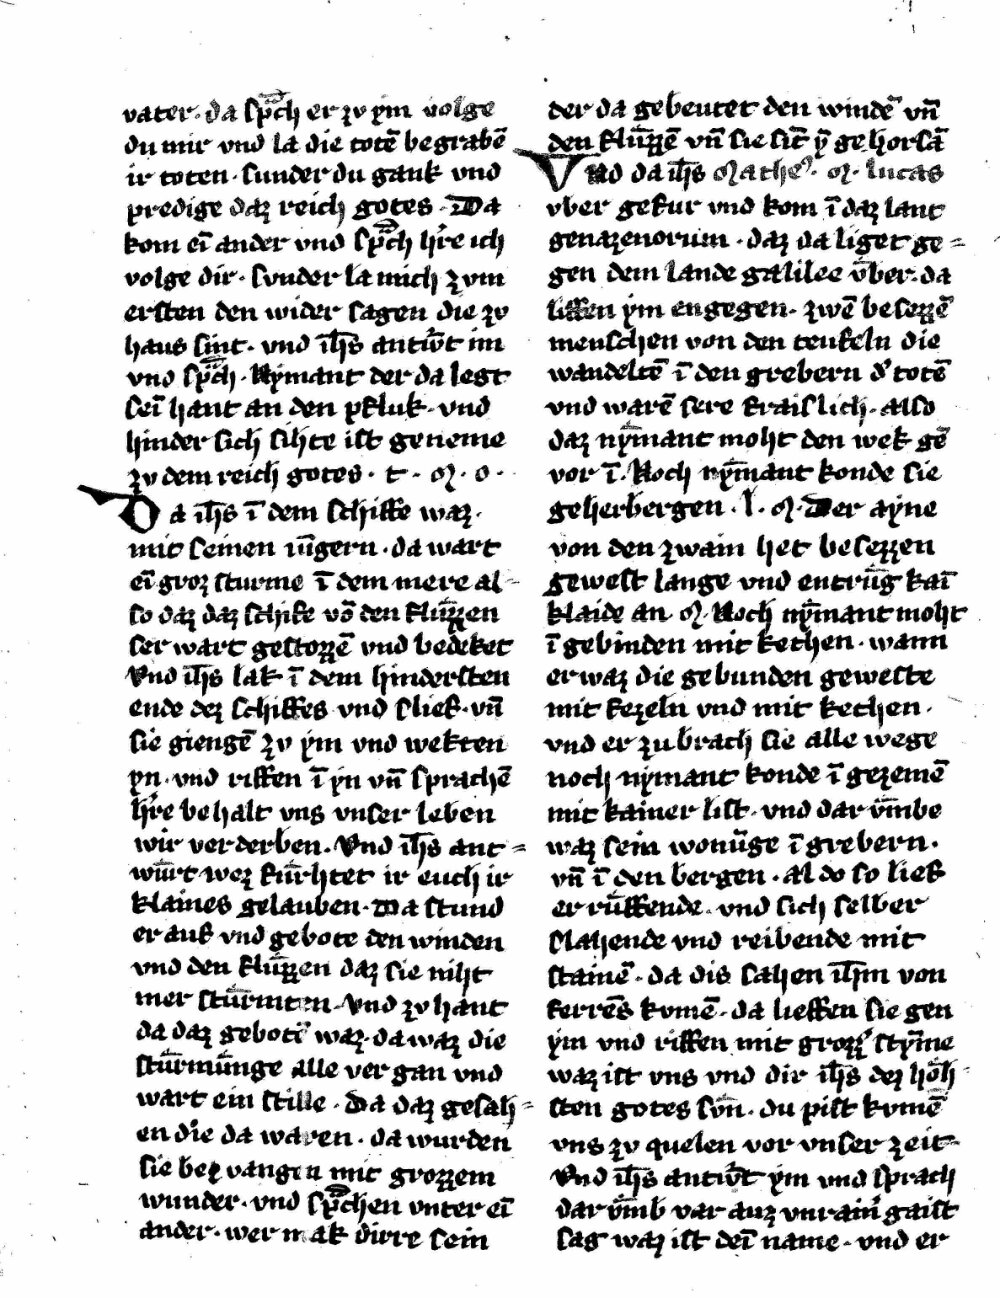 vater · da sp̄ch er zv ẏm volge
du mir vnd la die totē begrabē
ir toten · sunder du gank vnd
predige daz reich gotes · Da
kom eī ander vnd sp̄ch hr̄e ich
volge dir · sunder la mich zvm
ersten den wider sagen die zv
haus sint · vnd ih̄s antw̄t im
vnd sp̄ch · Nẏmant der da legt
seī hant an den pfluk · vnd
hinder sich sihte ist geneme
zv dem reich gotes · t · oꝛ · o ·
Da ih̄s ī dem schiffe waz ·
mit seinen iūgern · da wart
eī groz sturme ī dem mere al-
so daz daz schife vō den flūzzen
ser wart gestozzē vnd bedeket
Vnd ih̄s lak ī dem hindersten
ende dez schiffes vnd slief · vn̄
sie giengē zv ẏm vnd wekten
ẏn · vnd riffen ī ẏn vn̄ sprachē
hr̄e behalt vns vnser leben
wir verderben · Vnd ih̄s ant=
wūrt wez fūrhtet ir euch ir
klaines gelauben · Da stund
er auf vnd gebote den winden
vnd den flūzzen daz sie niht
mer stūrmten · Vnd zv hant
da daz gebotē waz · da waz die
stūrmūnge alle vergan vnd
wart ein stille · Da daz gesah=
en die da waren · da wurden
sie bezvangen mit grozzem
wunder · vnd sp̄chen vnter eī
ander · wer mak dirre sein
der da gebeutet den windē vn̄
den flūzzē vn̄ sie sīt ẏm gehorsā
Vnd da ih̄s Matheꝰ · M · lucas
vber gefur vnd kom ī daz lant
genazenorum · daz da liget ge=
gen dem lande galilee v̄ber · da
liffen ẏm engegen · zwē besezzē
menschen von den teufeln die
wandeltē ī den grebern d' totē
vnd warē sere fraislich · also
daz nẏmant moht den wek gē
vor ī · Noch nẏmant konde sie
geherbergen · l · M · Der aẏne
von den zwain het besezzen
gewest lange vnd entrūg kaī
klaide an · M · Noch nẏmant moht
ī gebinden mit kethen · wann
er waz die gebunden geweste
mit fezeln vnd mit kethen ·
vnd er zubrach sie alle wege
noch nẏmant konde ī gezemē
mit kainer list · vnd dar v̄mbe
waz sein wonūge ī grebern ·
vn̄ ī den bergen · al do so lief
er rūffende · vnd sich selber
slahende vnd reibende mit
stainē · da dis sahen ih̄m von
ferrēs komē · da lieffen sie gen
ẏm vnd riffen mit grozz' stẏme
waz ist vns vnd dir ih̄s dez hōh=
sten gotes svn̄ · du pist komē
vns zv quelen vor vnser zeit
Vnd ih̄s antw̄t ẏm vnd sprach
dar v̄mb var auz vnrain' gaist
sag waz ist deī name · vnd er